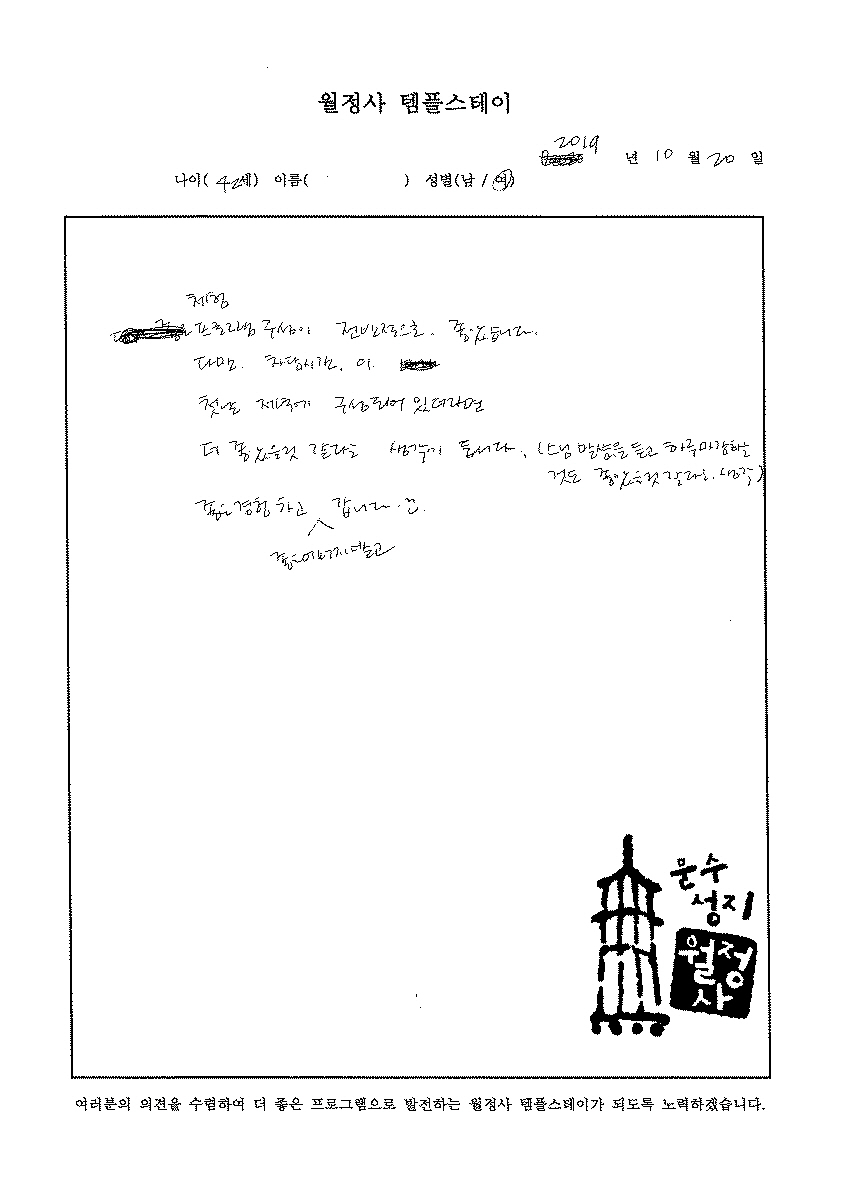 월정사 템플스테이
2019 년 10 월 20 일
나이( 42세) 이름( ) 성별(남 / 여)
체험
프로그램 구성이 전반적으로. 좋았습니다.
다만. 차담시간. 이
첫날 저녁에 구성되어 있더라면
더 좋았을것 같다는 생각이 듭니다. (스님 말씀을 듣고 하루마감하는
것도 좋았을것 같다는. 생각)
좋은경험 하고 갑니다.
좋은에너지 받고
문수
성지
월정
사
여러분의 의견을 수렴하여 더 좋은 프로그램으로 발전하는 월정사 템플스테이가 되도록 노력하겠습니다.